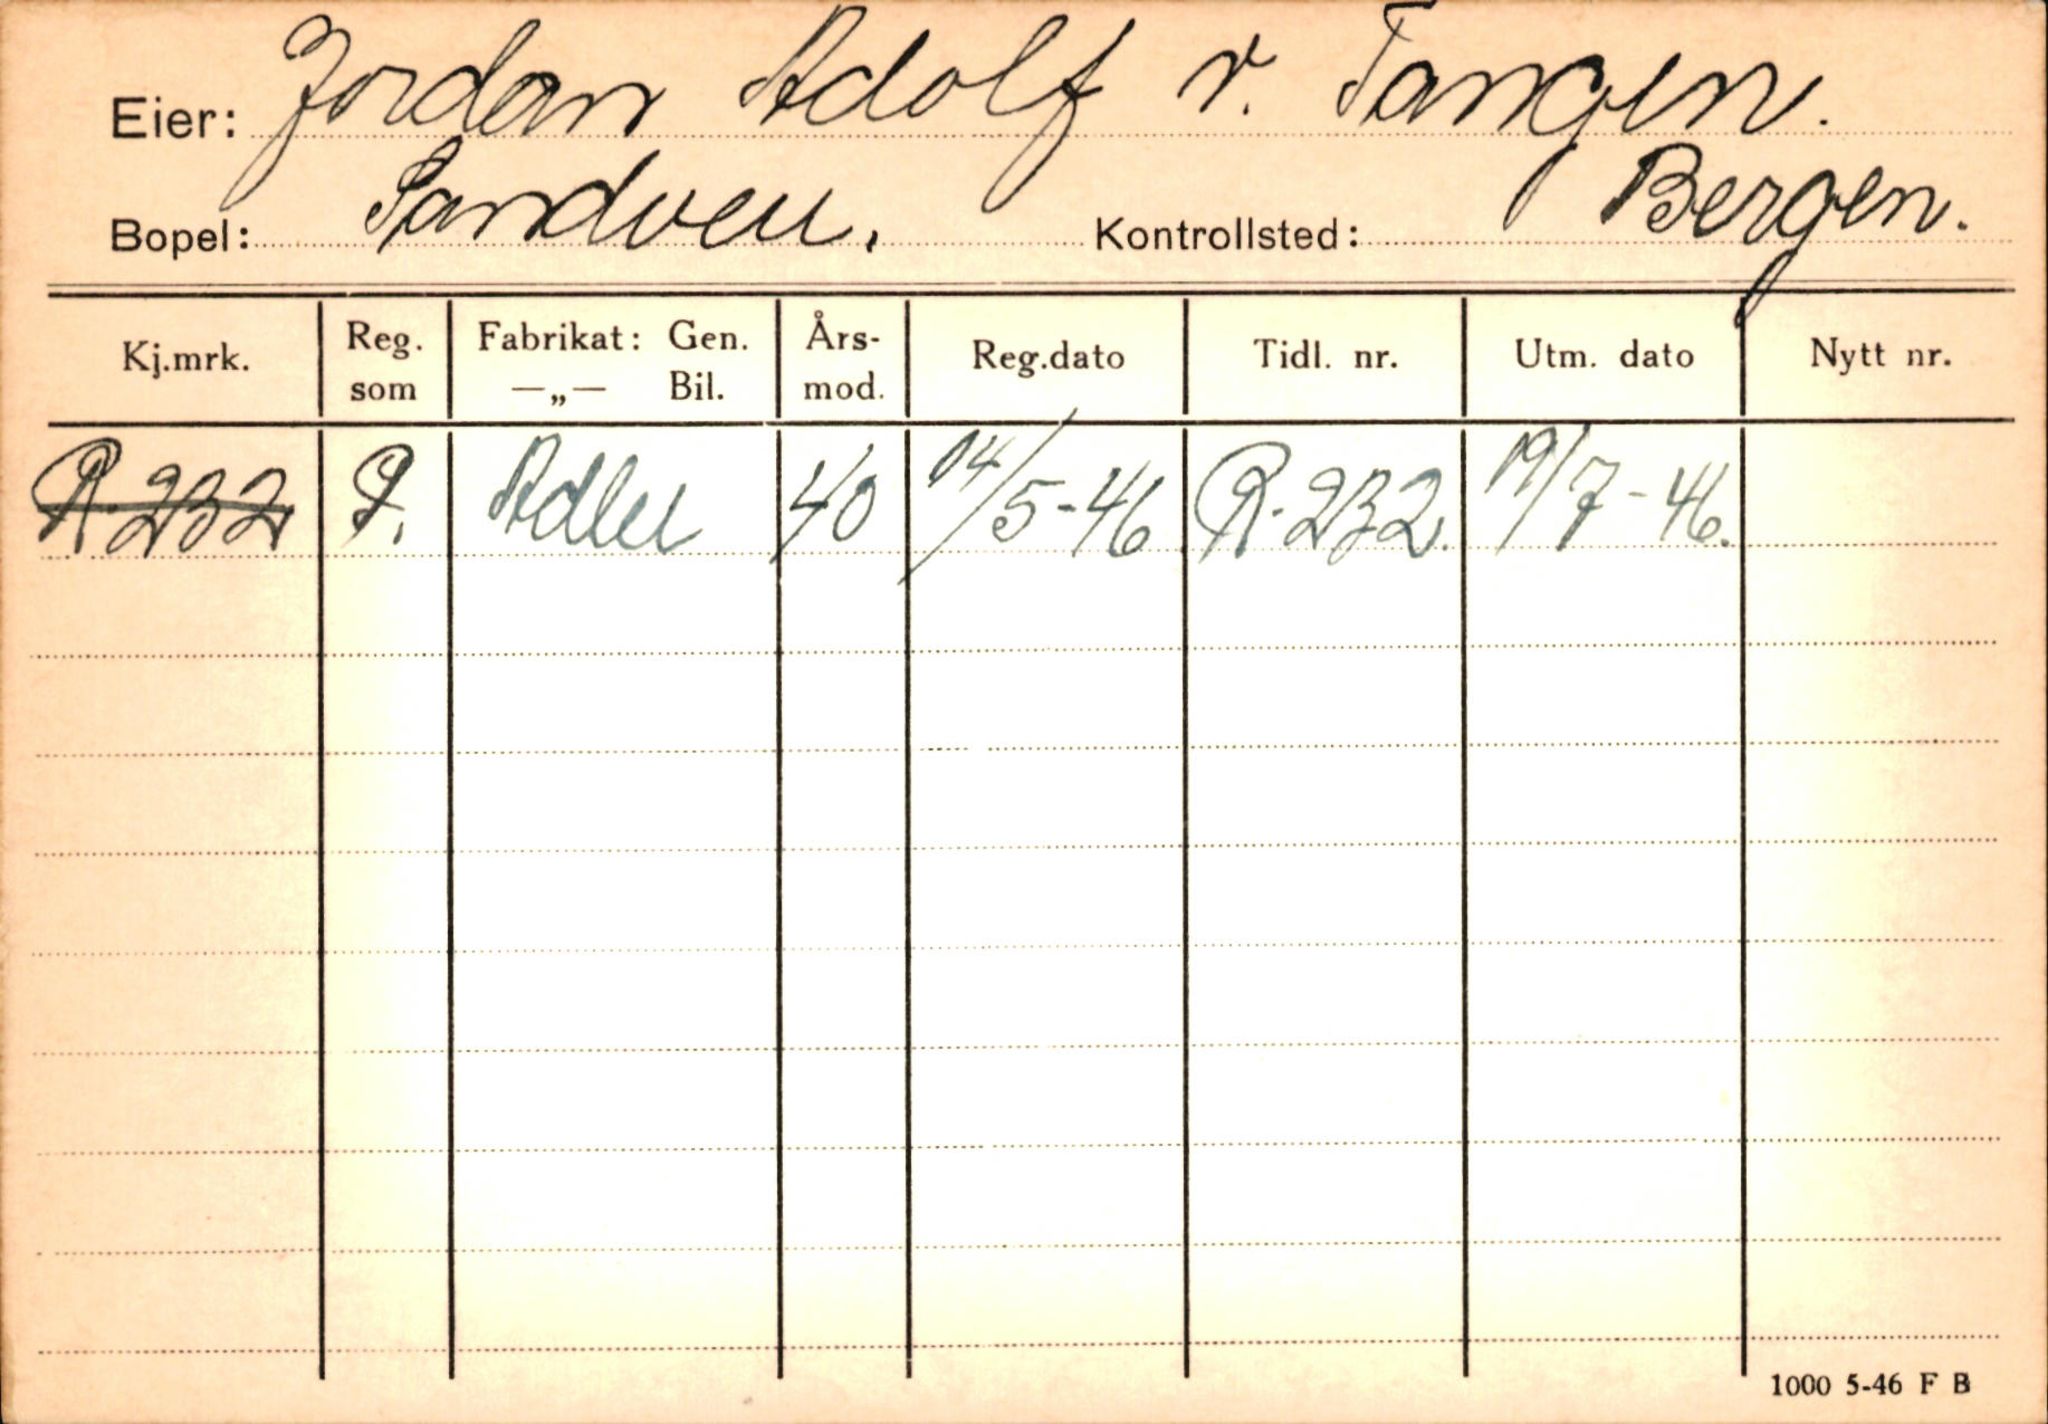 Eier: Jordan Adolf v. Tangen.
Bopel: Sandven. Kontrollsted: Bergen.
Kj.mrk. Reg. som Fabrikat: Gen. —„— Bil. Års- mod. Reg.dato Tidl. nr. Utm. dato Nytt nr.
R-232 P. Adler 40 04/5-46 R-232. 19/7-46.
1000 5-46 F B